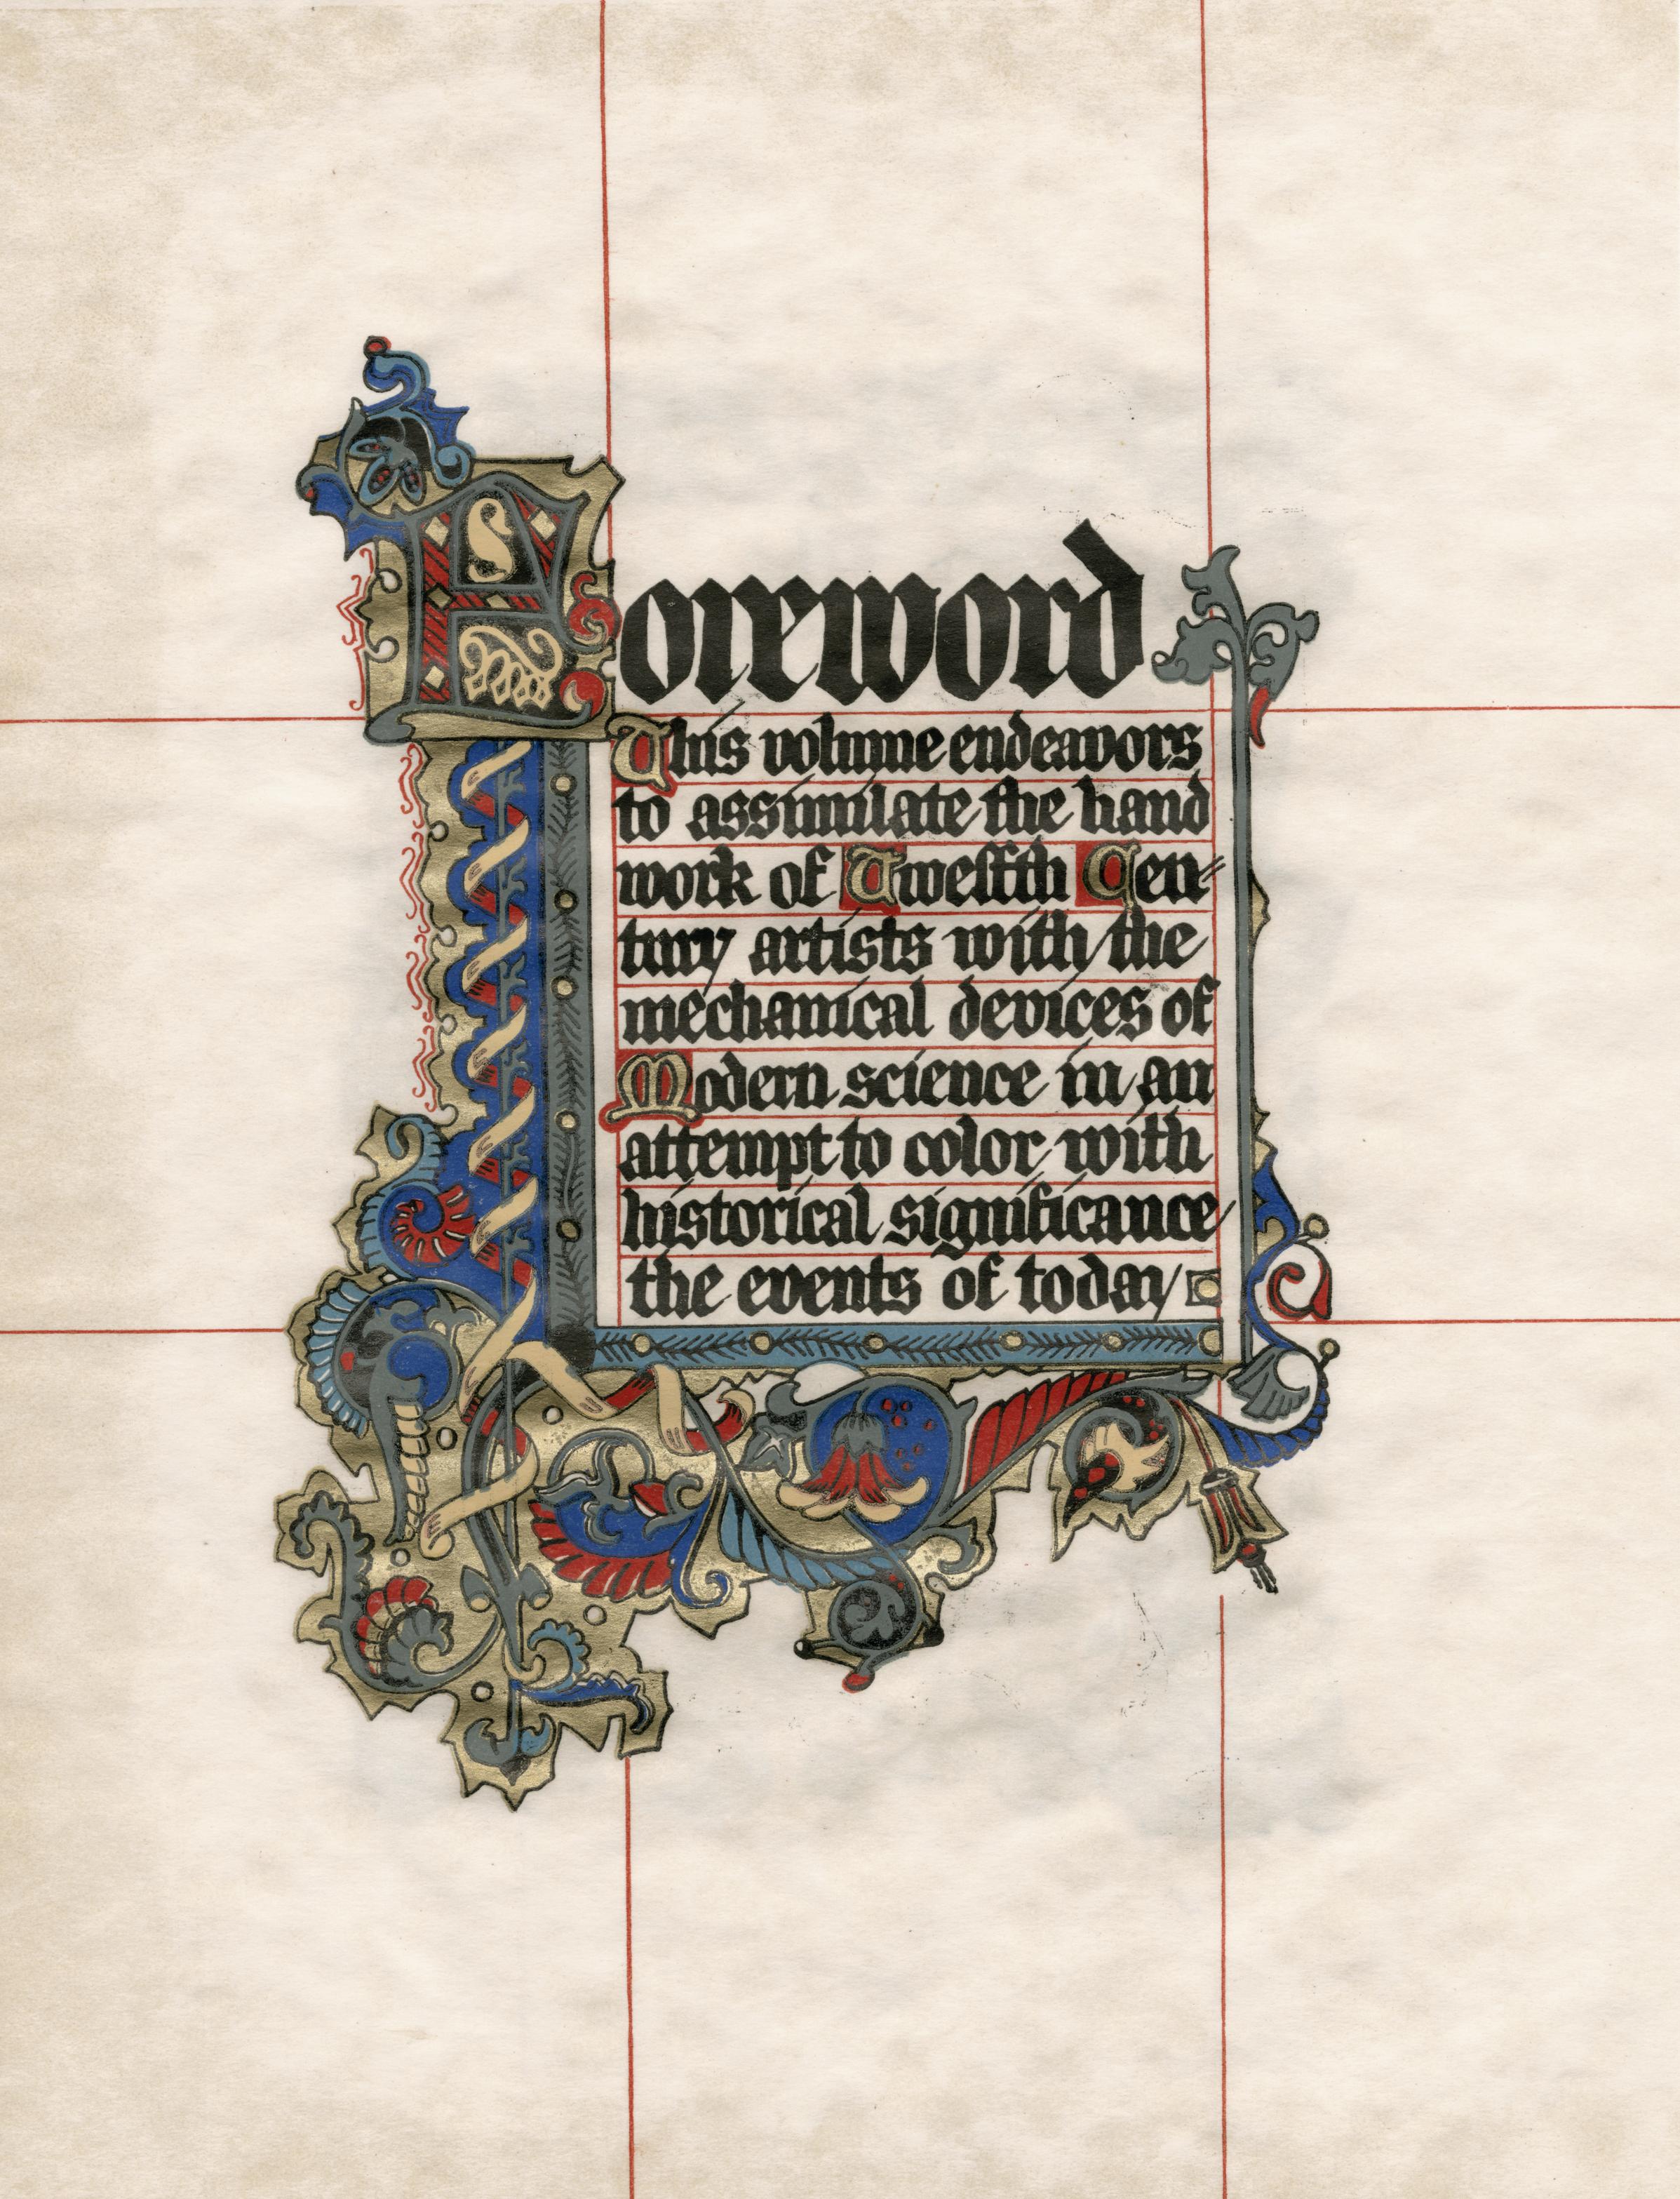 Foreword
This volume endeavors
to assimilate the hand
work of Twelfth Cen=
tury artists with the
mechanical devices of
Modern science in an
attempt to color with
historical significance
the events of today